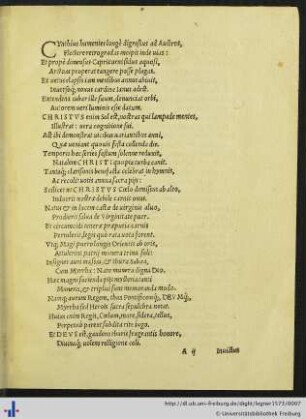 CYnthius humentes longè digressus ad Austros,
Flectere retrogradas incepit inde vias:
Et propè dimensus Capricorni sidus aquosi,
Arctous properat tangere posse plagas.
Et
Inversosque novas cardine Ianus adest.
Extendens iubar ille suum, denunciat orbi,
Autorem veri luminis esse datum.
CHRISTVS enim Sol est, nostras qui lampade mentes,
Illustrat: vera cognitione sui.
Ast ibi demonstrat
Quæ veniant quovis festa colenda die.
Temporis hæc series festum solenne reduxit,
Natalem CHRISTI quo pia turba canit.
Tantaque clarisonis benefacta celebrat in hymnis,
Ac recolit votis annua sacra pijs:
Scilicet ut CHRISTVS Cœlo demissus ab alto,
Induerit nostræ debile carnis onus.
Natus & in lucem castæ de virginis alvo,
Prodierit salva de Virginitate puer.
Et circumcisus teneræ præputia carnis
Pertulerit, legis quò rata vota forent.
Utque Magi puero longis Orientis ab oris,
Attulerint patrij munera trina soli:
Insignes auri massas, & thura Sabæa,
Cum Myrrha: Nato munera digna Deo.
Hæc magni facienda pijs mysteria
Muneris, & triplici sunt memoranda modo.
Namque aurum Regem, thus Pontificemque, DEVMque,
Myrrha sed Herois sacra sepulchra notat.
Huius enim Regis, Cœlum, mare, sidera, tellus,
Perpetuò parent subdita rite iugo.
Et DEVS est, gaudens thuris fragrantis honore,
Divinaque volens relligione coli.
A ij
Invictus
http://dl.ub.uni-freiburg.de/diglit/
/0007
© Universitätsbibliothek Freiburg